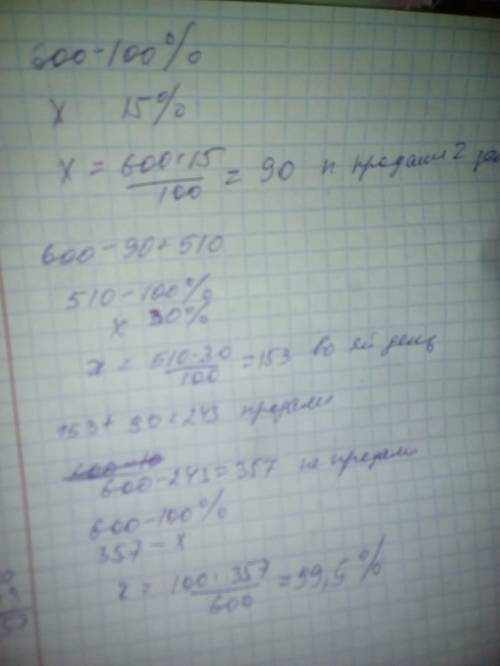 600 - 100%
x 15%
x = 600·15/100 = 90 п продали
600 - 90 = 510
510 - 100%
x 30%
x = 510·30/100 = 153 во день
153 + 90 = 243 продали
600 - 243 = 357 не продали
600 - 100%
357 - x
x = 100·357/600 = 59,5%